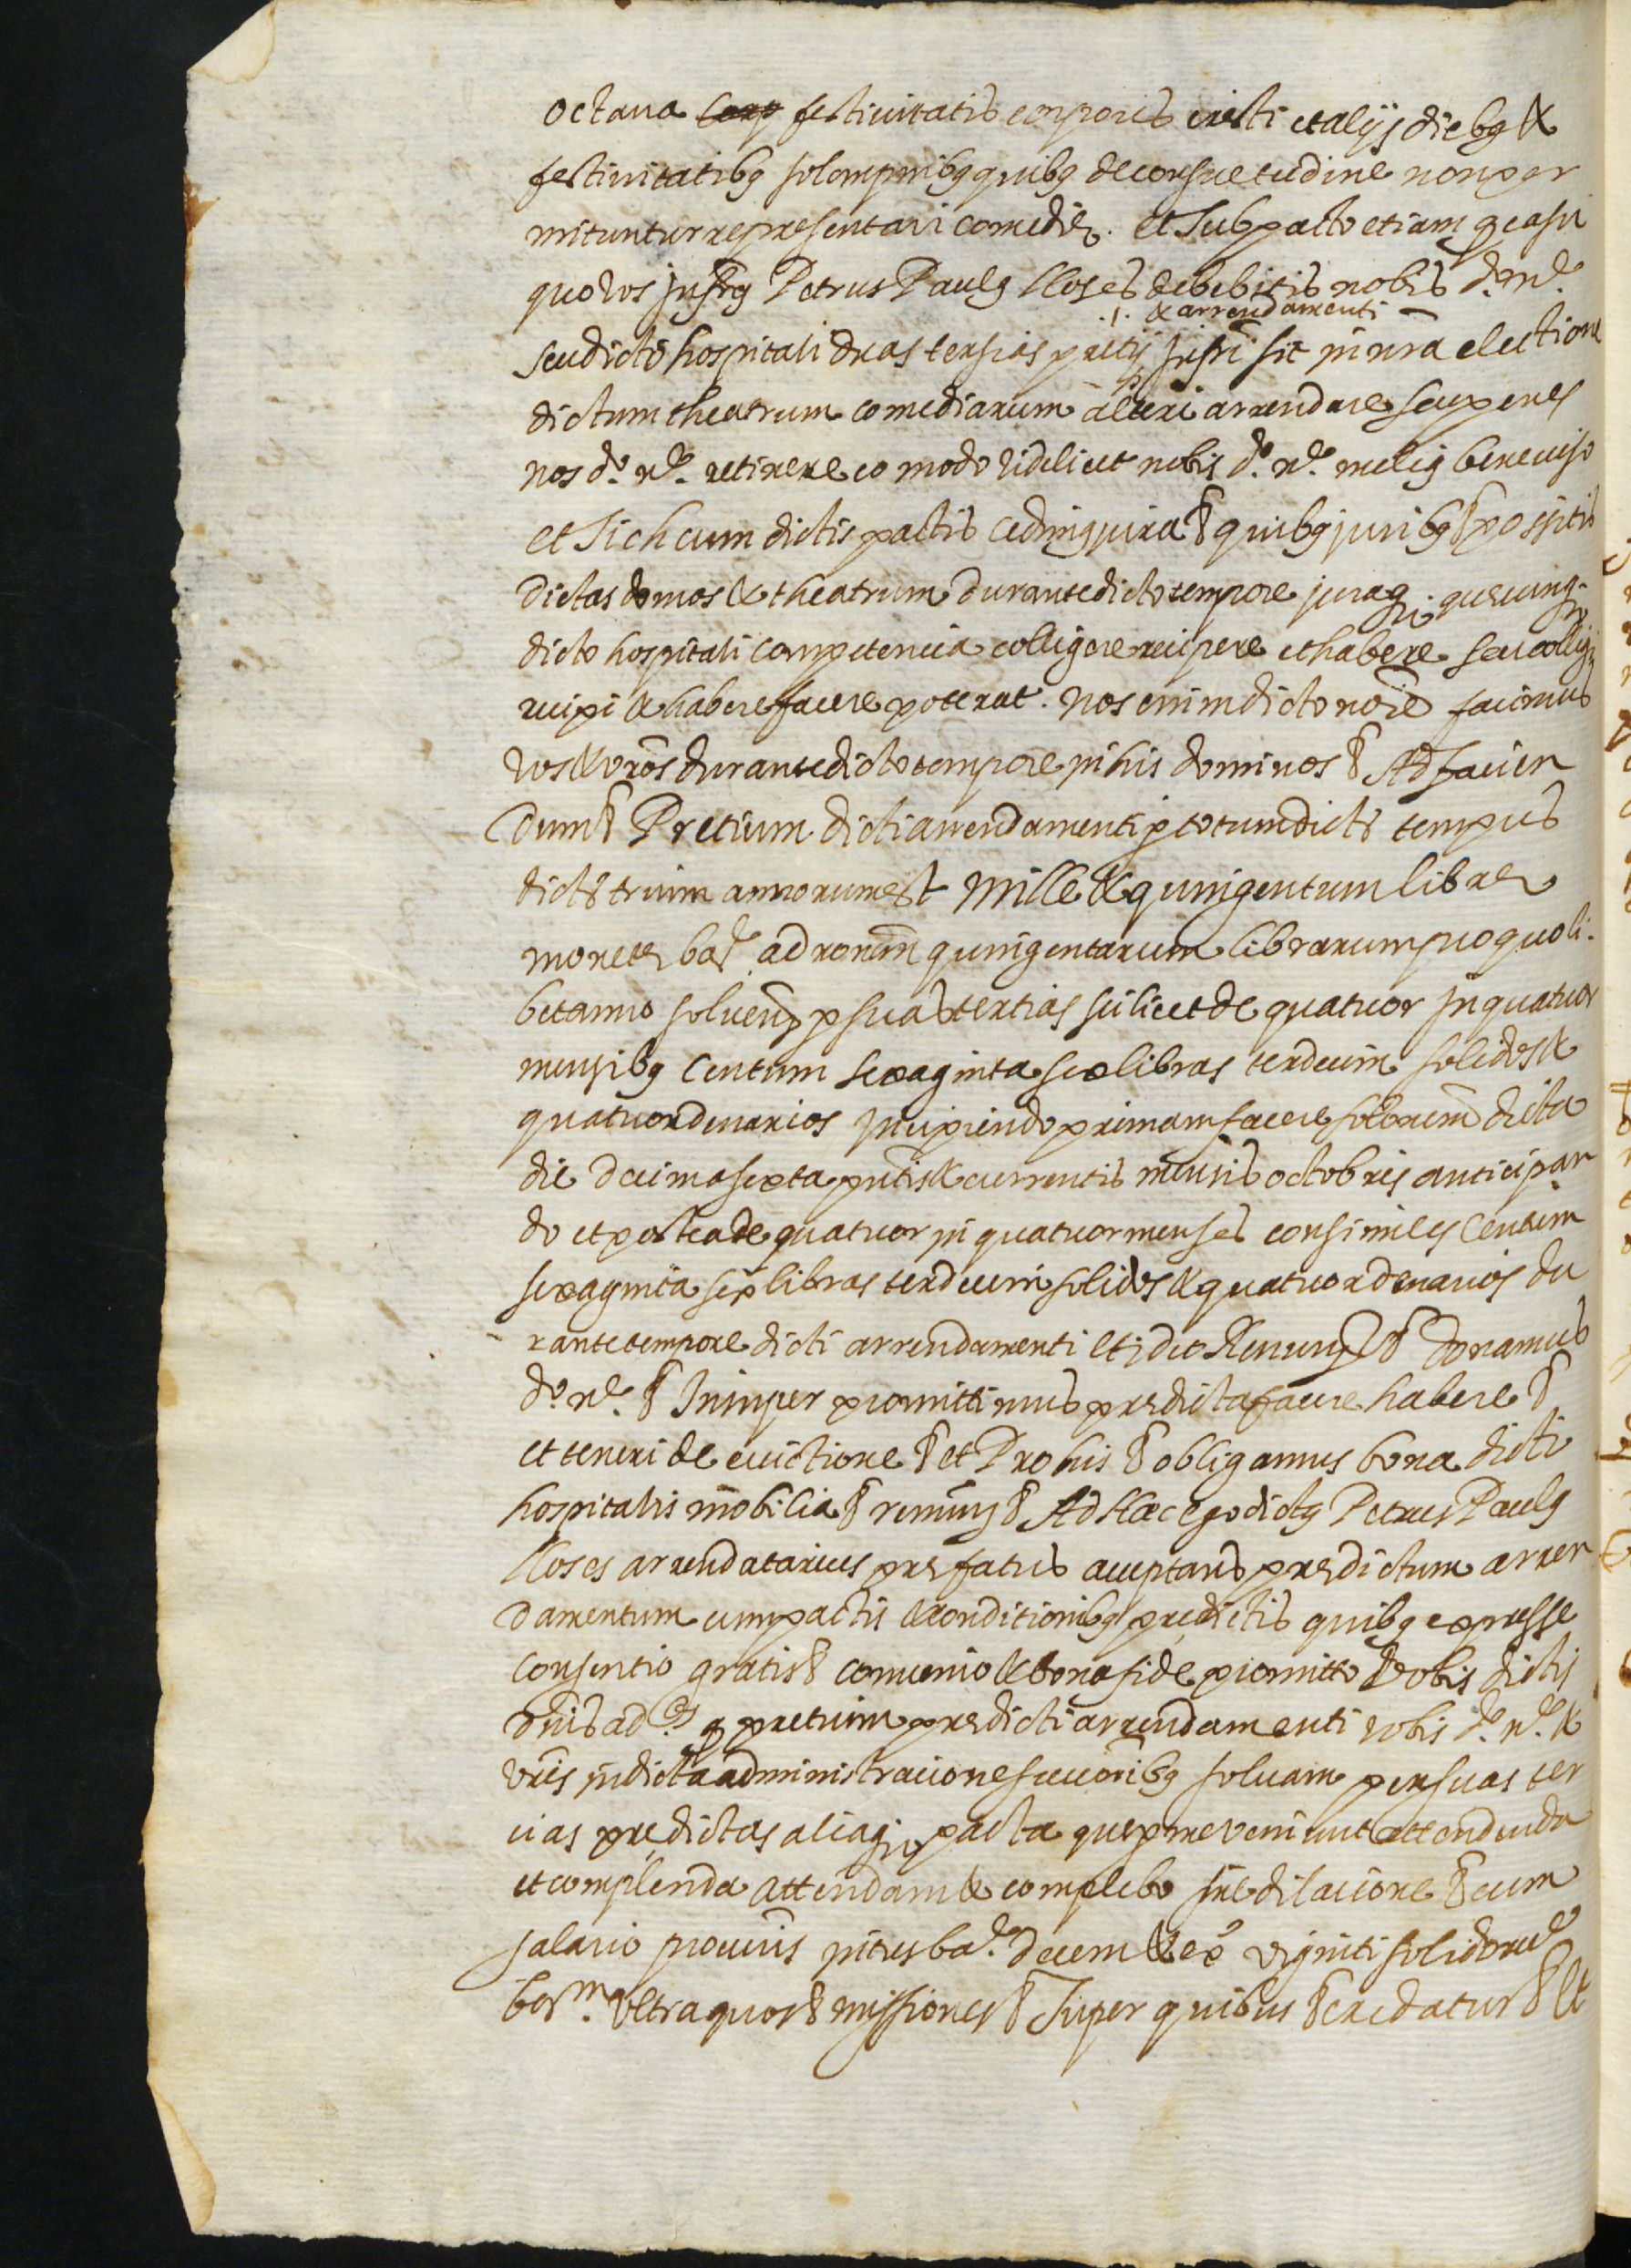 octava Corp festivitatis corporis cristi et alijs diebus &
festivitatibus solempnibus quibus de consuetudine non per
mituntur representari comedię. et sub pacto etiam q casu
quo vos jnfrus Petrus Paulus Lloses debebitis nobis do. ne.
.1. & arrendamenti
seu dicto hospitali duas tersias pretij jnfri sit jn nra electione
dictum theatrum comediarum alteri arrendare seu penes
nos do. ne. retinere eo modo videlicet nobis do. ne. melius beneviso
et sich cum dictis pactis cedimus jura & quibus juribus & possitis
dictas domos & theatrum durante dicto tempore juraq. quęcunq.
dicto hospitali competencia colligere recipere et habere seu colligi
recipi & habere facere poterat. nos enim dicto noīe facimus
vos & vros durante dicto tempore jn his dominos & Ad facien
dum & Pretium dicti arrendamenti p totum dicti tempus
dictorum trium annorum est mille & quingentum librę
monetę bar. ad ronem quingentarum librarum pro quoli.
bet anno solvend. p suas tertias scilicet de quatuor jn quatuor
mensibus centum sexaginta sex libras terdecim solidos &
quatuor denarios jncipiendo primam facere solōnem dicta
die decima sexta pntis & currentis mensis octobris anticipan
do et postea de quatuor jn quatuor menses consimiles centum
sexaginta sex libras terdecim solidos & quatuor denarios du
rante tempore dicti arrendamenti et ideo Renun. & donamus
do. ne. & Insuper promittimus prędicta facere habere &
et teneri de evictione & et Pro his & obligamus bona dicti
hospitalis mobilia & renun. & Ad Hæc ego dictus Petrus Paulus
Lloses arrendatarius pręfatus acceptans prędictum arren
damentum cum pactis & conditionibus prędictis quibus expresse
consentio gratis & convenio & bona fide promitto vobis dictis
dnis ad. q pretium prędicti arrendamenti vobis do. ne. &
vris jn dicta administracione successoribus solvam per suas ter
cias prędictas aliaq. pacta quę p me veniunt attendenda
et complenda attendam & complebo sine dilacione & cum
salario procuris jntus bar. decem & ex. viginti solidorum
bar. Ultra quos & missiones & Super quibus & credatur & Et